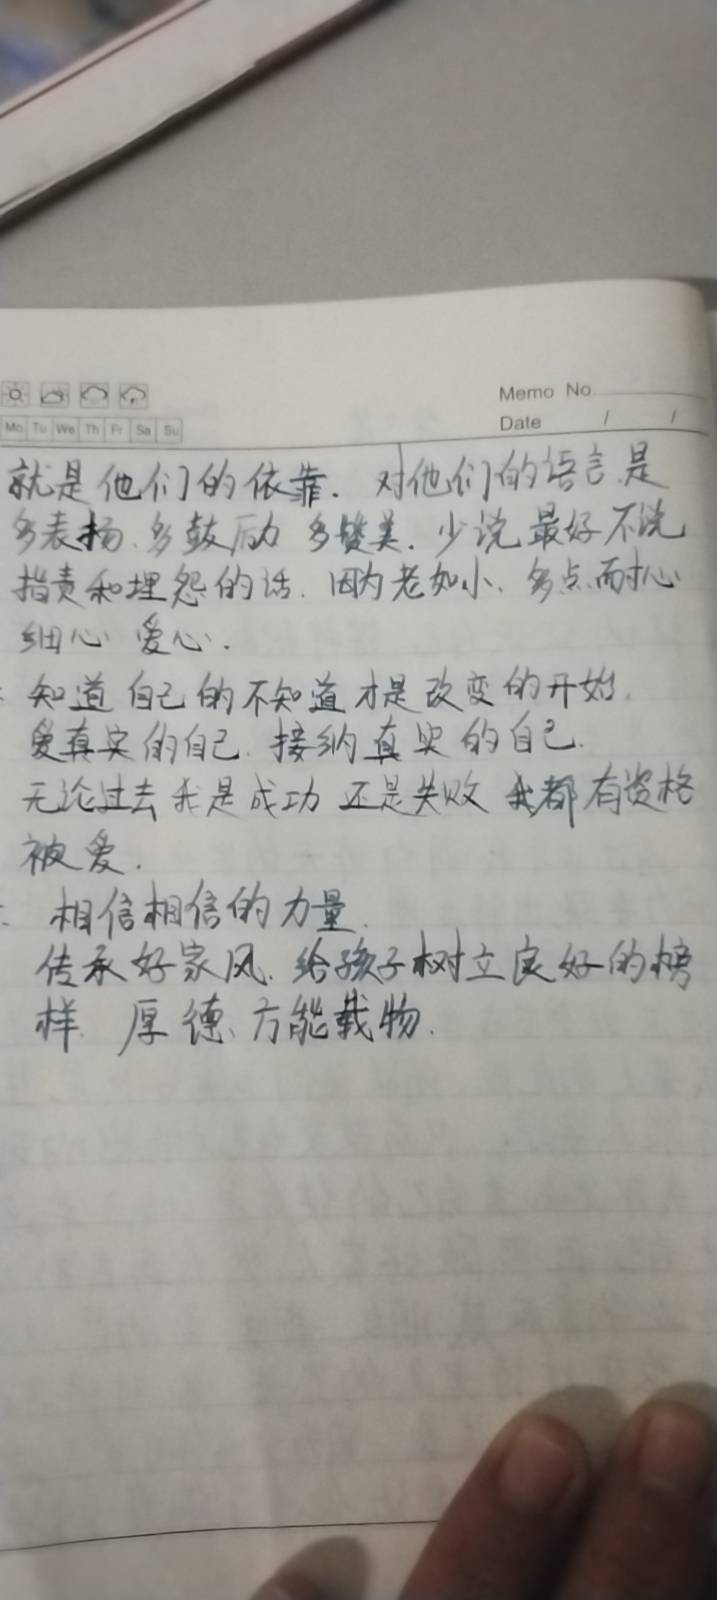 Memo No.
Mo Tu We Th Fr Sa Su
Date / /
就是他们的依靠. 对他们的语言.是
多表扬.多鼓励 多赞美. 少说 最好不说
指责和埋怨的话. 因为老如小. 多点耐心
细心 爱心.
知道自己的不知道才是改变的开始.
爱真实的自己. 接纳真实的自己.
无论过去我是成功 还是失败 我都有资格
被爱.
相信相信的力量.
传承好家风. 给孩子树立良好的榜
样. 厚德、方能载物.